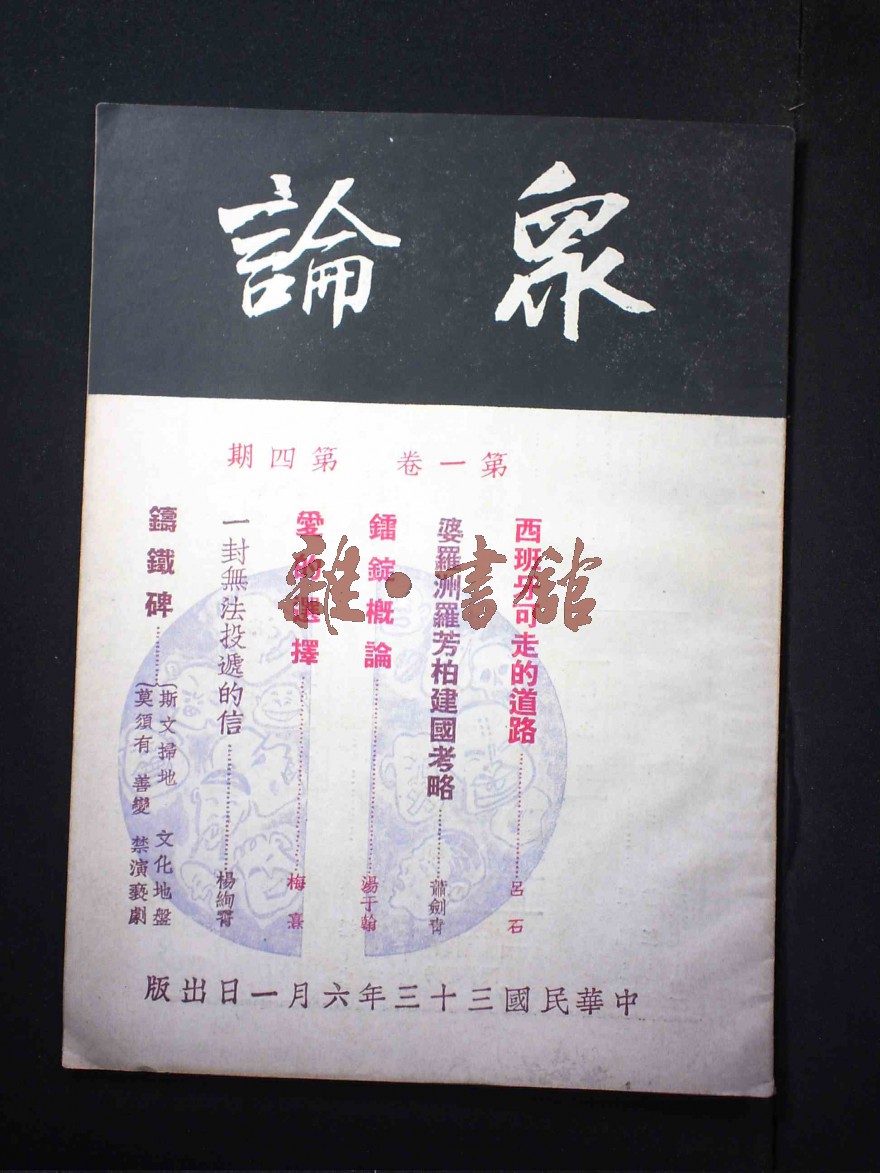 眾論
第一卷 第四期
西班牙可走的道路……呂石
婆羅洲羅芳柏建國考略……蕭劍青
鐳錠概論……湯于翰
愛的選擇……梅熹
一封無法投遞的信……楊絢霄
鑄鐵碑……
斯文掃地 文化地盤
莫須有 善變 禁演褻劇
中華民國三十三年六月一日出版
雜·書館